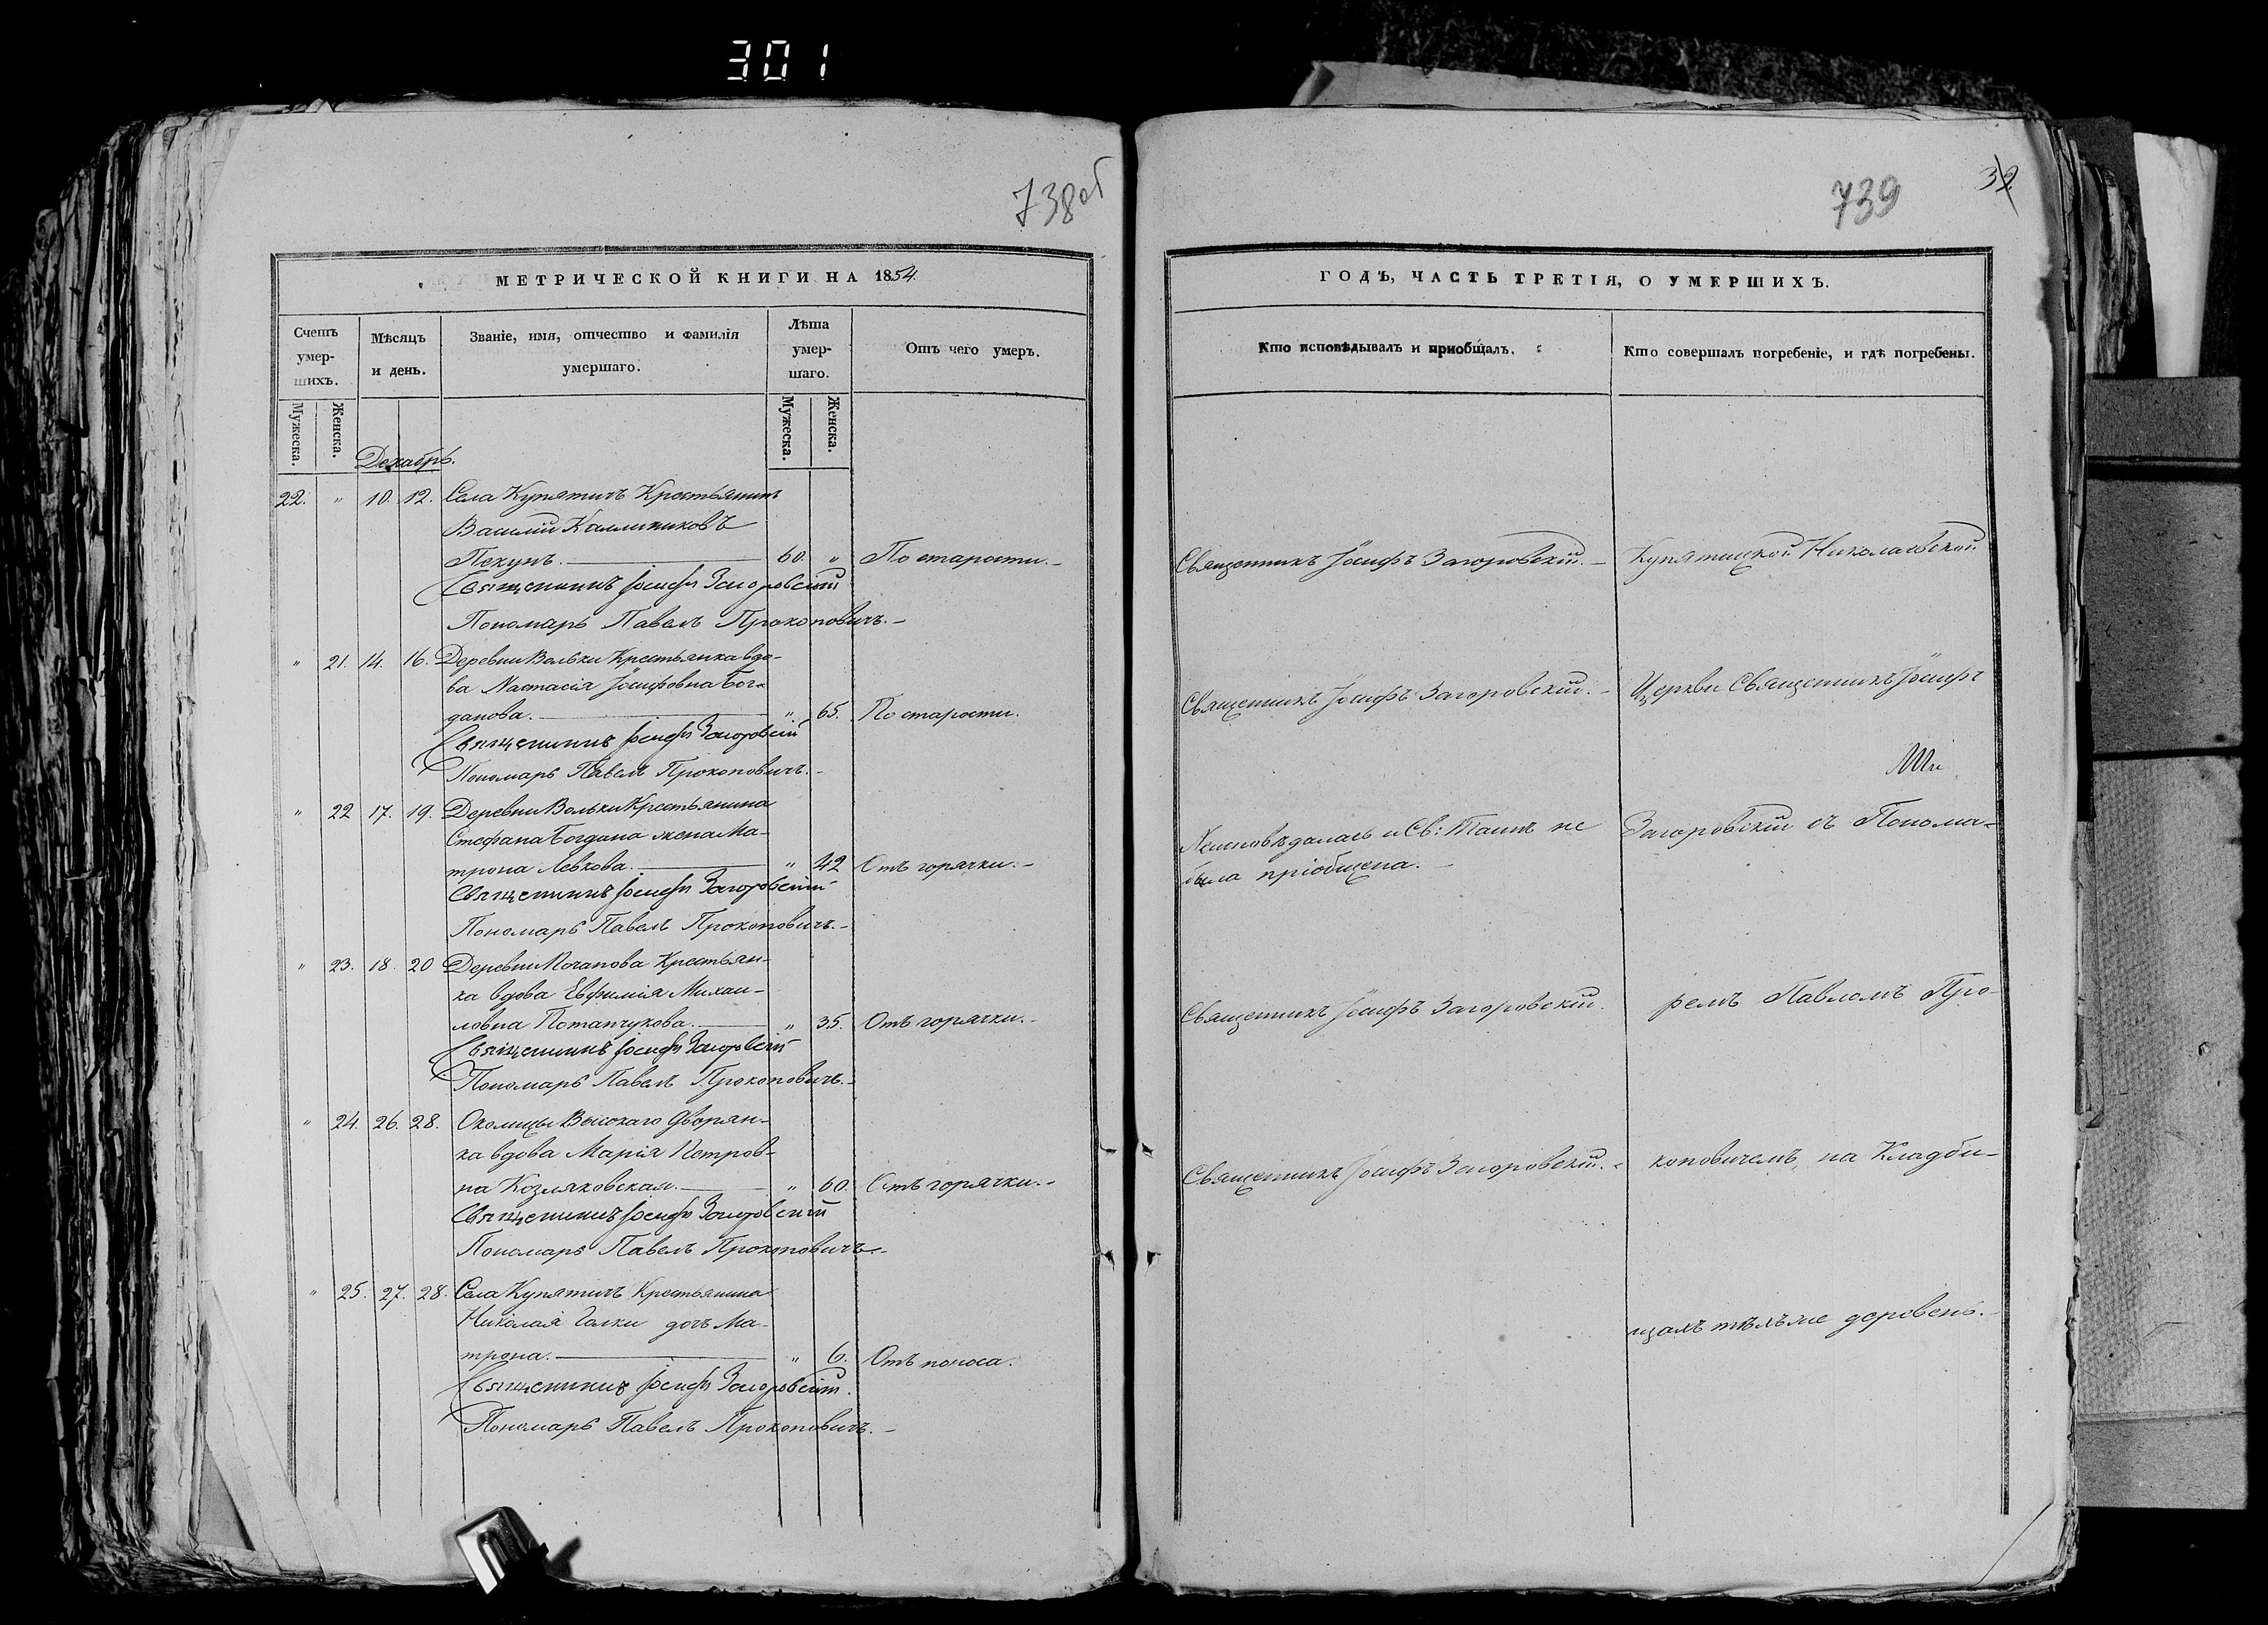 301
738об
МЕТРИЧЕСКОЙ КНИГИ НА 1854.
Счетъ умер- шихъ.
Мѣсяцъ и день.
Званіе, имя, отчество и фамилія умершаго.
Лѣта умер- шаго.
Отъ чего умеръ.
Мужеска.
Женска.
Мужеска.
Женска.
Декабрь.
22. " 10. 12. Села Купятичъ Крестьянинъ
Василій Каллиниковъ
Пекунъ. 60. " По старости.
Священникъ Іосифъ Загоровскій
Пономарь Павелъ Прокоповичъ.
" 21. 14. 16. Деревни Вольки Крестьянка вдо-
ва Настасія Іосифовна Бог-
данова. " 65. По старости.
Священникъ Іосифъ Загоровскій
Пономарь Павелъ Прокоповичъ.
" 22 17. 19. Деревни Вольки Крестьянина
Стефана Богдана жена Ма-
трона Левкова. " 42 Отъ горячки.
Священникъ Іосифъ Загоровскій
Пономарь Павелъ Прокоповичъ.
" 23. 18. 20 Деревни Почапова Крестьян-
ка вдова Евфимія Михаи-
ловна Потапчукова. " 35. Отъ горячки.
Священникъ Іосифъ Загоровскій
Пономарь Павелъ Прокоповичъ.
" 24. 26. 28. Околицы Высокаго Дворян-
ка вдова Марія Петров-
на Козляковская. " 60. Отъ горячки.
Священникъ Іосифъ Загоровскій
Пономарь Павелъ Прокоповичъ.
" 25. 27. 28. Села Купятичъ Крестьянина
Николая Галки дочъ Ма-
трона. " 6. Отъ поноса.
Священникъ Іосифъ Загоровскій.
Пономарь Павелъ Прокоповичъ.
739
32
ГОДЪ, ЧАСТЬ ТРЕТІЯ, О УМЕРШИХЪ.
Кто исповѣдывалъ и приобщалъ.
Кто совершалъ погребеніе, и гдѣ погребены.
Священникъ Іосифъ Загоровскій. Купятицкой Николаевской
Священникъ Іосифъ Загоровскій. Церкви Священникъ Іосифъ
Неисповѣдалась и Св: Таинъ не Загоровскій съ Понома-
была пріобщена.
Священникъ Іосифъ Загоровскій. ремъ Павломъ Про-
Священникъ Іосифъ Загоровскій. коповичемъ, на Кладби-
щахъ тѣхъ же деревень.